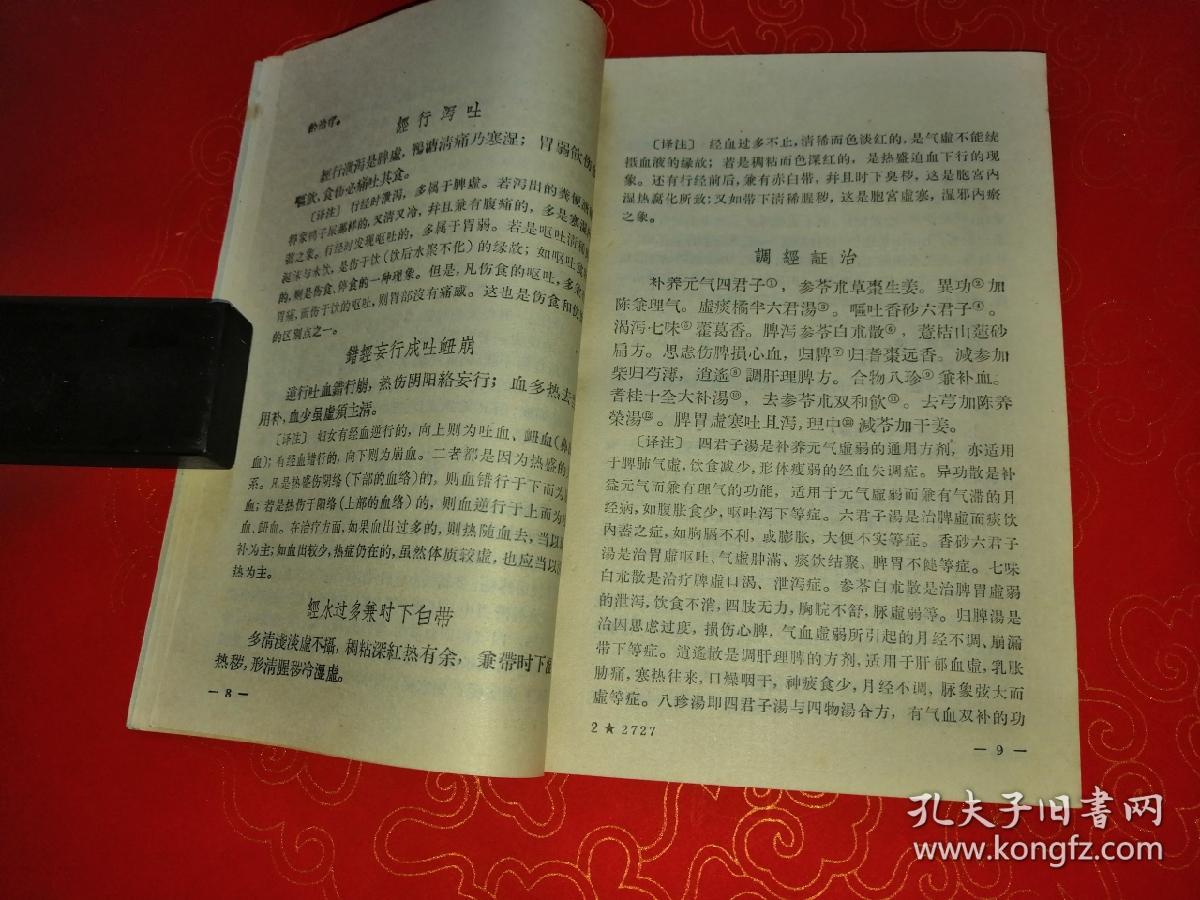 的治疗。
經行泻吐
經行泄泻是脾虛，鴨溏清痛乃寒湿；胃弱飲伤
嘔飲，食伤必痛吐其食。
〔译注〕行经时泄泻，多属于脾虚。若泻出的粪便
将家鸭子尿那样的，又清又冷，幷且兼有腹痛的，多是寒湿
涎沫与水饮，是伤于饮（饮后水聚不化）的缘故；如呕吐
的，则是伤食、停食的一种现象。但是，凡伤食的呕吐，多
胃痛，而伤于饮的呕吐，则胃部沒有痛感。这也是伤食和
的区别点之一。
錯經妄行成吐衄崩
逆行吐血錯行崩，热伤阴阳絡妄行；血多热去
用补，血少虽虛須主清。
〔译注〕妇女有經血逆行的，向上则为吐血、衄血
血）；有经血错行的，向下则为崩血。二者都是因为热盛的
系。凡是热盛伤阴络（下部的血络）的，则血错行于下而为
血；若是热伤于阳络（上部的血络）的，则血逆行于上而为
血、衄血。在治疗方面，如果血出过多的，则热随血去，当以
补为主；如血出较少，热症仍在的，虽然体质较虚，也应当以
热为主。
經水过多兼时下白带
多清浅淡虛不攝，稠粘深紅热有余，兼帶时下
热秽，形清腥秽冷湿虛。
— 8 —
〔译注〕经血过多不止，清稀而色淡红的，是气虚不能统
摄血液的缘故；若是稠粘而色深红的，是热盛迫血下行的现
象。还有行经前后，兼有赤白带，幷且时下臭秽，这是胞宫內
湿热腐化所致；又如带下清稀腥秽，这是胞宫虚寒，湿邪內瘀
之象。
調經証治
补养元气四君子①，参苓朮草棗生姜。異功②加
陈兼理气。虛痰橘半六君湯③。嘔吐香砂六君子④。
渴泻七味⑤藿葛香。脾泻参苓白朮散⑥，薏桔山蓮砂
扁方。思虑伤脾損心血，归脾⑦归耆棗远香。減参加
柴归芍薄，逍遙⑧調肝理脾方。合物八珍⑨兼补血。
耆桂十全大补湯⑩，去参苓朮双和飲⑪。去芎加陈养
榮湯⑫。脾胃虛寒吐且泻，理中⑬減苓加干姜。
〔译注〕四君子湯是补养元气虚弱的通用方剂，亦适用
于脾肺气虚，饮食减少，形体瘦弱的经血失调症。异功散是补
益元气而兼有理气的功能，适用于元气虛弱而兼有气滞的月
经病，如腹胀食少，呕吐泻下等症。六君子湯是治脾虚而痰饮
內蓄之症，如胸膈不利，或膨胀，大便不实等症。香砂六君子
湯是治胃虚呕吐、气虚肿滿，痰饮结聚、脾胃不健等症。七味
白朮散是治疗脾虚口渴、泄泻症。参苓白朮散是治脾胃虛弱
的泄泻，饮食不消，四肢无力，胸脘不舒，脉虛弱等。归脾湯是
治因思虑过度，损伤心脾，气血虛弱所引起的月经不调、崩漏
带下等症。逍遙散是调肝理脾的方剂，适用于肝郁血虛，乳胀
胁痛，寒热往来，口燥咽干，神疲食少，月经不调，脉象弦大而
虛等症。八珍湯即四君子湯与四物湯合方，有气血双补的功
2 ★ 2727
— 9 —
孔夫子旧书网
www.kongfz.com